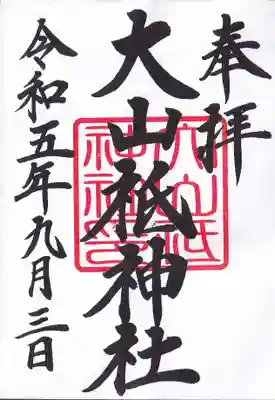 奉拝
大山祇神社
令和五年九月三日
大山祇
神社印